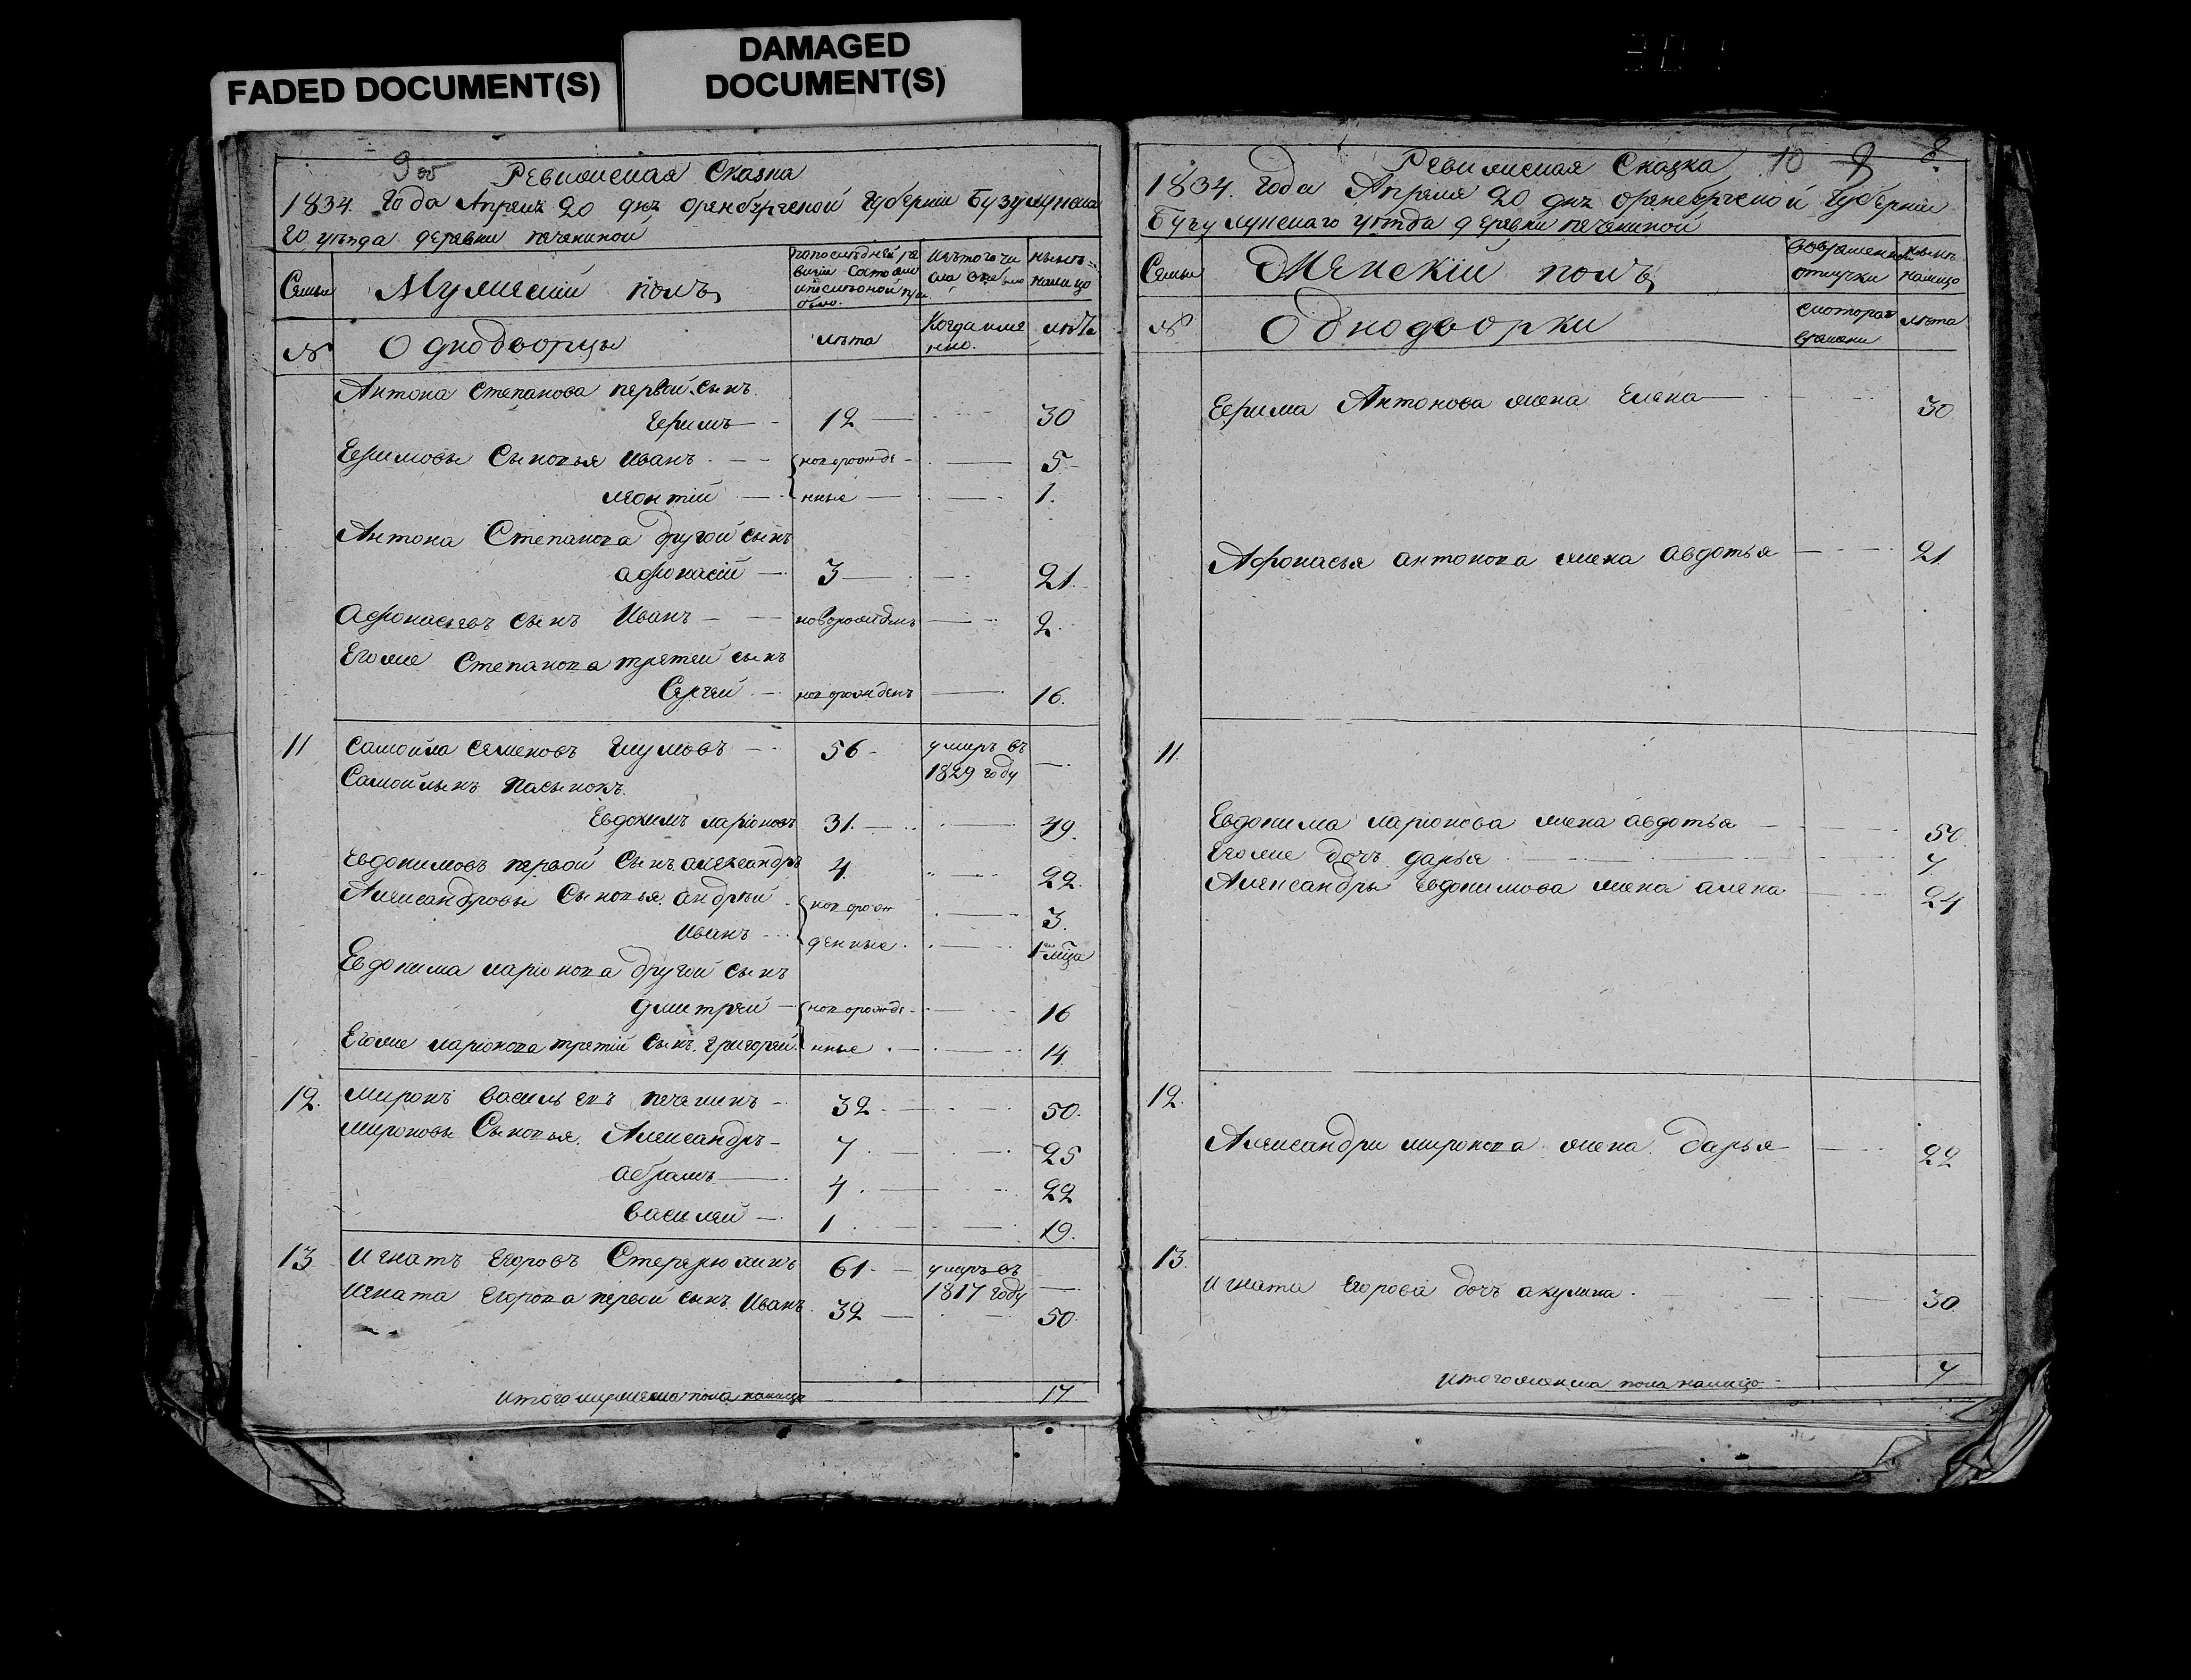 FADED DOCUMENT(S)
DAMAGED
DOCUMENT(S)
9 об
Ревижская Сказка
1834. Года Апреля 20 дня оренбургской Губернии Бузулукска
го уѣзда деревни печекиной
Семьи
Мужеский полъ
по последней ре
визии состояло
и после оной при
было.
Изъ того чи
сла выбыло
нынѣ
налицо
№
Однодворцы
лѣта
Когда име
нно.
лѣта
Антона Степанова первой сынъ
Ефимъ 12 30
Ефимовы Сыновья Иванъ новорожде 5
леонтий нные 1.
Антона Степанова другой сынъ
афонасий 3 21.
Афонасьевъ сынъ Иванъ новорожденъ 2.
Егоже Степанова третей сынъ
Сергей новорожденъ 16.
11 Самойла Семеновъ Глумовъ 56 умиръ въ
1829 году
Самойлынъ пасынокъ.
Евдокимъ ларионовъ 31. 49.
Евдокимовъ первой Сынъ александръ 4. 22.
Александровы Сыновья. андрѣй новорож 3.
Иванъ денные. 1 мца
Евдокима ларионова другой сынъ
дмитрей новорожде 16
Егоже ларионова третий сынъ. григорей. нные 14.
12. миронъ васильевъ печекинъ 32. 50.
мироновы Сыновья. Александръ 7. 25
абрамъ 4. 22
василей 1. 19.
13 Игнатъ Егоровъ 61. умиръ въ
1817 году
Игната Егорова первой сынъ Иванъ. 32 50.
итого мужеска пола налицо 17
Ревижская Сказка 10 9 8
1834. Года Апреля 20 дня оренбургской Губернии
Бузулукскаго уѣзда деревни печекиной
Семьи
Женский полъ
во временной
отлучки
нынѣ
налицо
№
Однодворки
скотораго
времени
лѣта
Ефима Антонова жена Елена 30.
Афонасья антонова жена авдотья 21
11.
Евдокима ларионова жена авдотья 50.
Егоже дочь дарья 7.
Александры Евдокимова жена алена 24
12.
Александры миронова жена. Дарья 22
13.
Игната Егорова дочь акулина. 30.
итого женска пола налицо 7